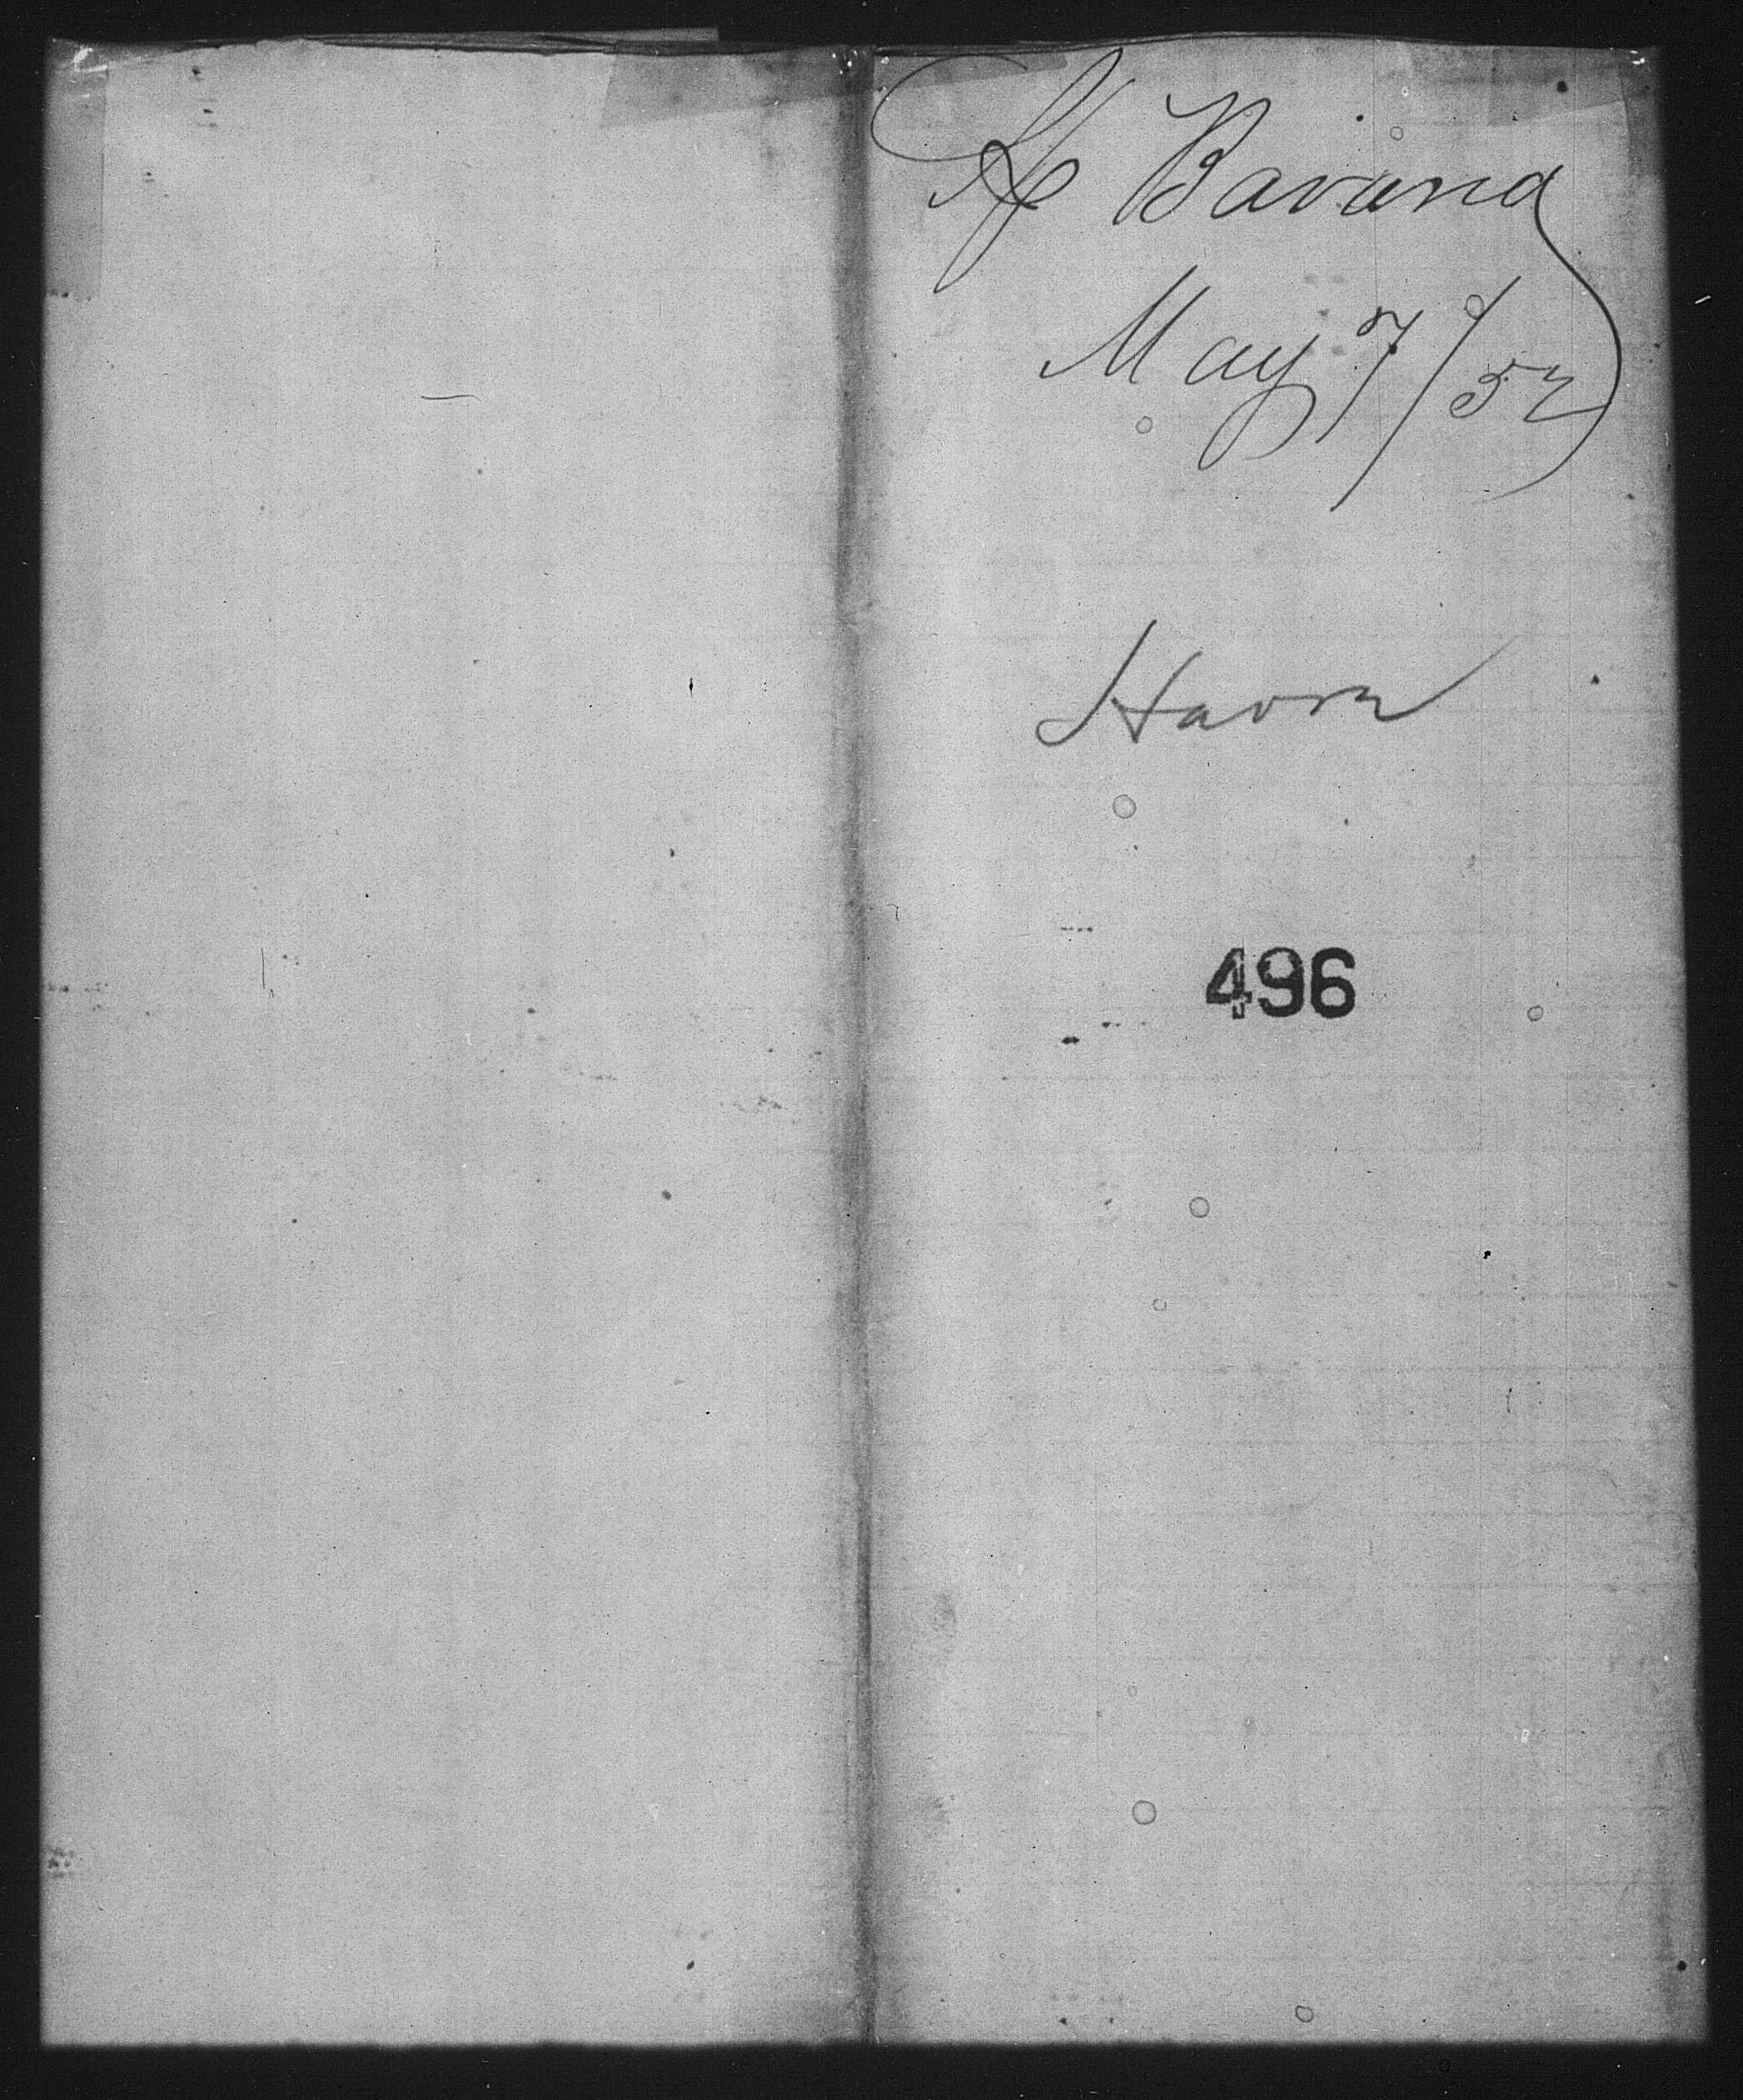 St Bavaria
May 7/52
Havre
496